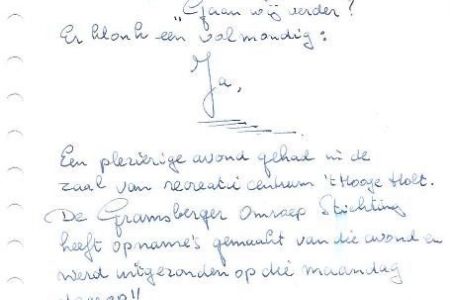 „Gaan wij verder?
Er klonk een volmondig:
Ja,
Een plezierige avond gehad in de
zaal van recreatie centrum 't Hooge Holt.
De Gramsberger Omroep Stichting
heeft opname's gemaakt van die avond en
werd uitgezonden op die maandag